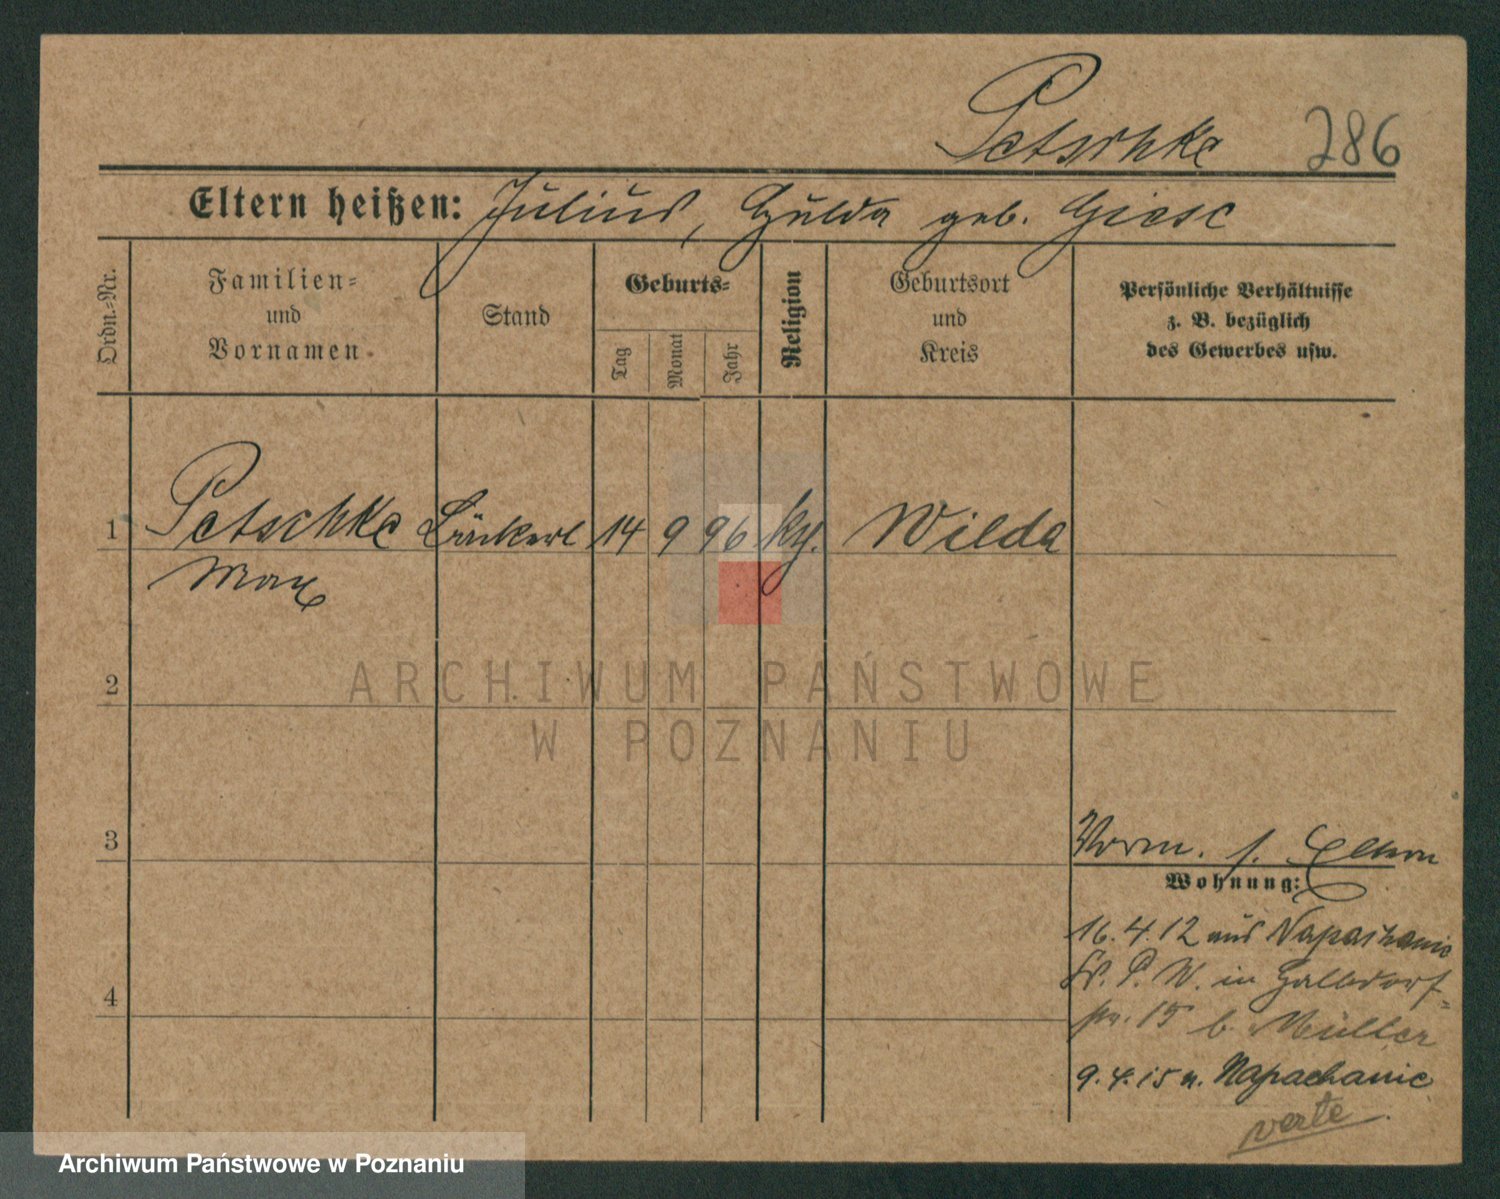 Petschke 286
Eltern heißen: Julius, Hulda geb. Giese
Ordn.-Nr.
Familien-
und
Vornamen
Stand
Geburts-
Tag
Monat
Jahr
Religion
Geburtsort
und
Kreis
Persönliche Verhältnisse
z. B. bezüglich
des Gewerbes usw.
1 Petschke Bäckerl 14 9 96 Wilda
Max
2
3
4
ARCHIWUM PAŃSTWOWE
W POZNANIU
Vorm. s. Eltern
Wohnung:
16.4.12 aus Napachanie
St. P. W. in Halldorf-
str. 15 b. Müller
9.4.15 n. Napachanie
verte
Archiwum Państwowe w Poznaniu